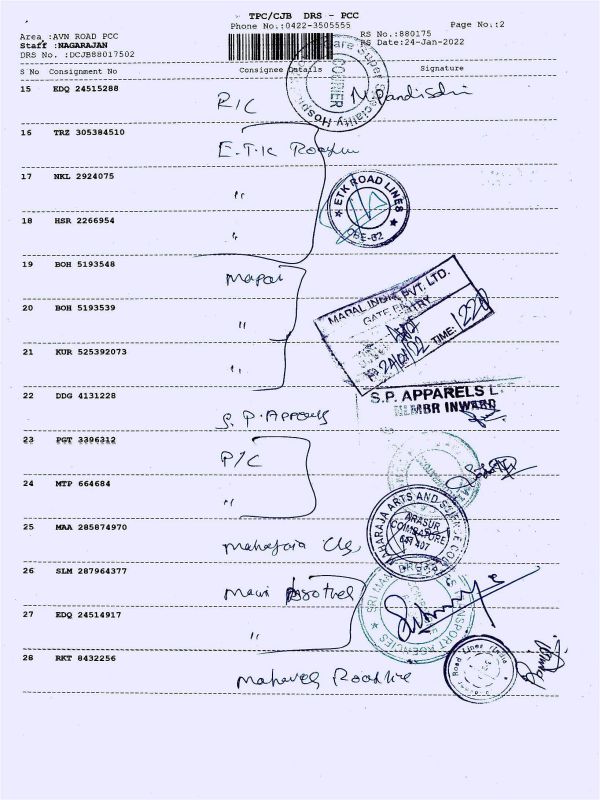 TPC/CJB DRS - PCC
Phone No.:0422-3505555
Page No.:2
Area :AVN ROAD PCC
RS No.:880175
Staff :NAGARAJAN
RS Date:24-Jan-2022
DRS No. :DCJB88017502
S No Consignment No Consignee Details Signature
15 EDQ 24515288
COURIER
16 TRZ 305384510
E.T.K
17 NKL 2924075
"
ETK ROAD LINES
CBE-02
18 HSR 2266954
"
19 BOH 5193548
Mapal
MAPAL INDIA PVT. LTD.
GATE ENTRY
24/01/22 TIME: 1220
20 BOH 5193539
"
21 KUR 525392073
"
22 DDG 4131228
S.P. Apparels
S.P. APPARELS L
MEMBR INWARD
23 PGT 3396312
P/C
24 MTP 664684
"
25 MAA 285874970
MAHARAJA ARTS AND SCIENCE COL
ARASUR
COIMBATORE
641 407
26 SLM 287964377
SRI MA
TRANSPORT AGENCIES
27 EDQ 24514917
"
28 RKT 8432256
Road Lines (India